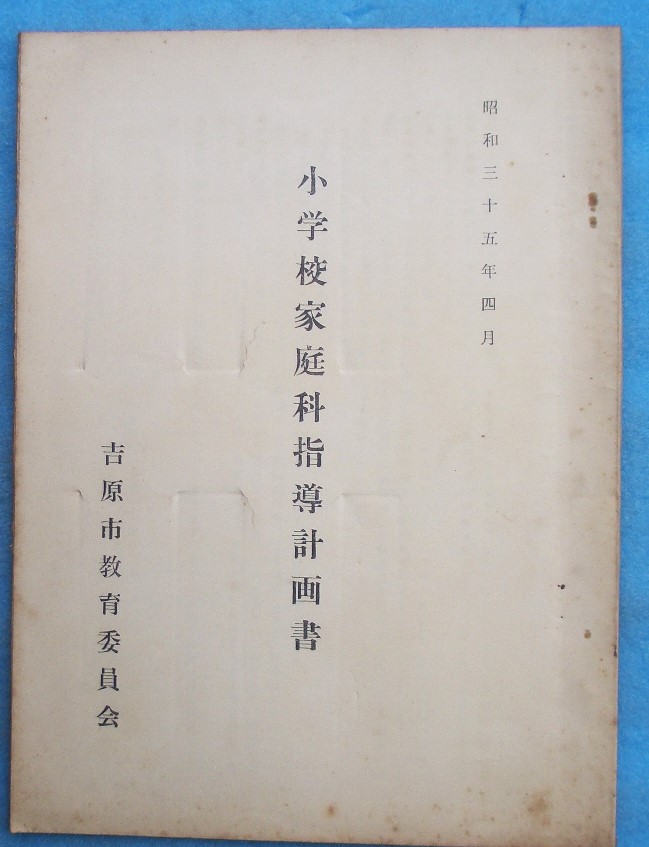 昭和三十五年四月
小学校家庭科指導計画書
吉原市教育委員会